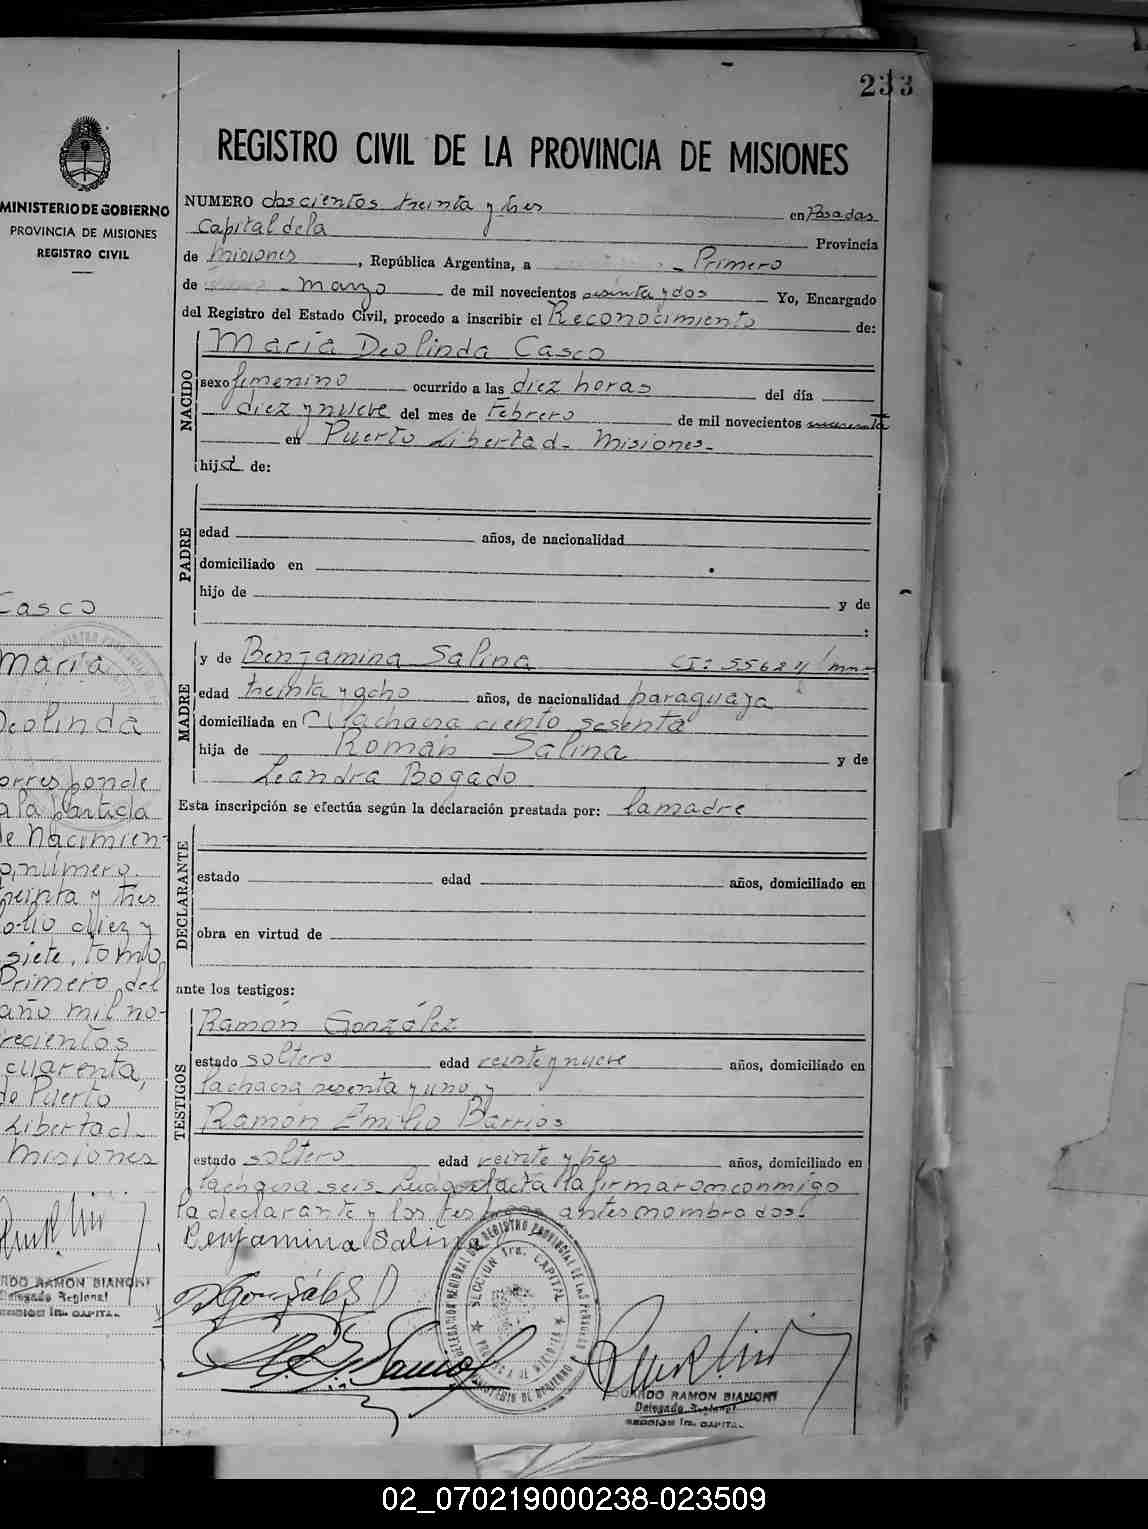 233
MINISTERIO DE GOBIERNO
PROVINCIA DE MISIONES
REGISTRO CIVIL
Casco
Maria
Deolinda
orresponde
a la partida
de Nacimien-
o, número
treinta y tres
folio diez y
siete, tomo
Primero del
año mil no-
vecientos
cuarenta,
de Puerto
Libertad -
Misiones
RDO RAMON BIANCHI
Delegado Regional
SECCION 1ra. CAPITAL
REGISTRO CIVIL DE LA PROVINCIA DE MISIONES
NUMERO doscientos treinta y tres en Posadas
Capital de la Provincia
de Misiones, República Argentina, a - Primero
de - Marzo de mil novecientos sesenta y dos Yo, Encargado
del Registro del Estado Civil, procedo a inscribir el Reconocimiento de:
NACIDO
Maria Deolinda Casco
sexo femenino ocurrido a las diez horas del día
diez y nueve del mes de Febrero de mil novecientos
en Puerto Libertad - Misiones -
hija de:
PADRE
edad años, de nacionalidad
domiciliado en
hijo de y de
:
MADRE
y de Benjamina Salina CI: 55624
edad treinta y ocho años, de nacionalidad paraguaya
domiciliada en la chacra ciento sesenta
hija de Román Salina y de
Leandra Bogado
Esta inscripción se efectúa según la declaración prestada por: la madre
DECLARANTE
estado edad años, domiciliado en
obra en virtud de
ante los testigos:
TESTIGOS
Ramón González
estado soltero edad veinte y nueve años, domiciliado en
la chacra sesenta y uno y
Ramón Emilio Barrios
estado soltero edad veinte y tres años, domiciliado en
la chacra seis. Leida el acta la firmaron conmigo
la declarante y los testigos antes nombrados.
Benjamina Salina
EDUARDO RAMON BIANCHI
Delegado Regional
SECCION 1ra. CAPITAL
02_070219000238-023509